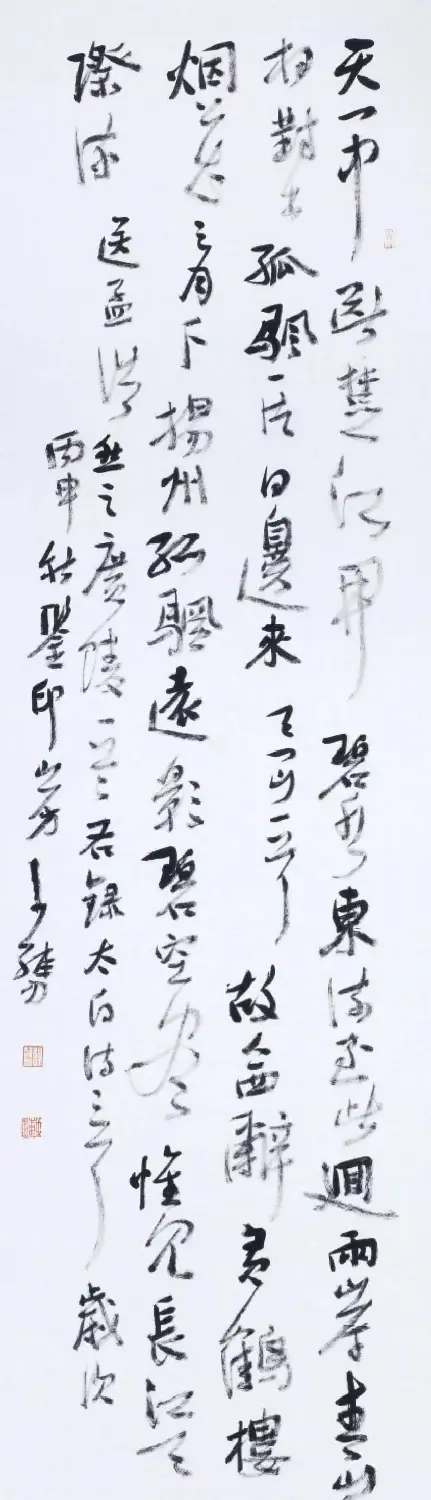 天门中斷楚江開碧水東流至此迴兩岸青山
相對出孤颿一片日邊來天门山一首故人西辭黃鶴樓
烟花三月下揚州孤颿遠影碧空盡惟見長江天
際流送孟浩然之廣陵一首右錄太白詩二首歲次
丙申秋鑒印山房